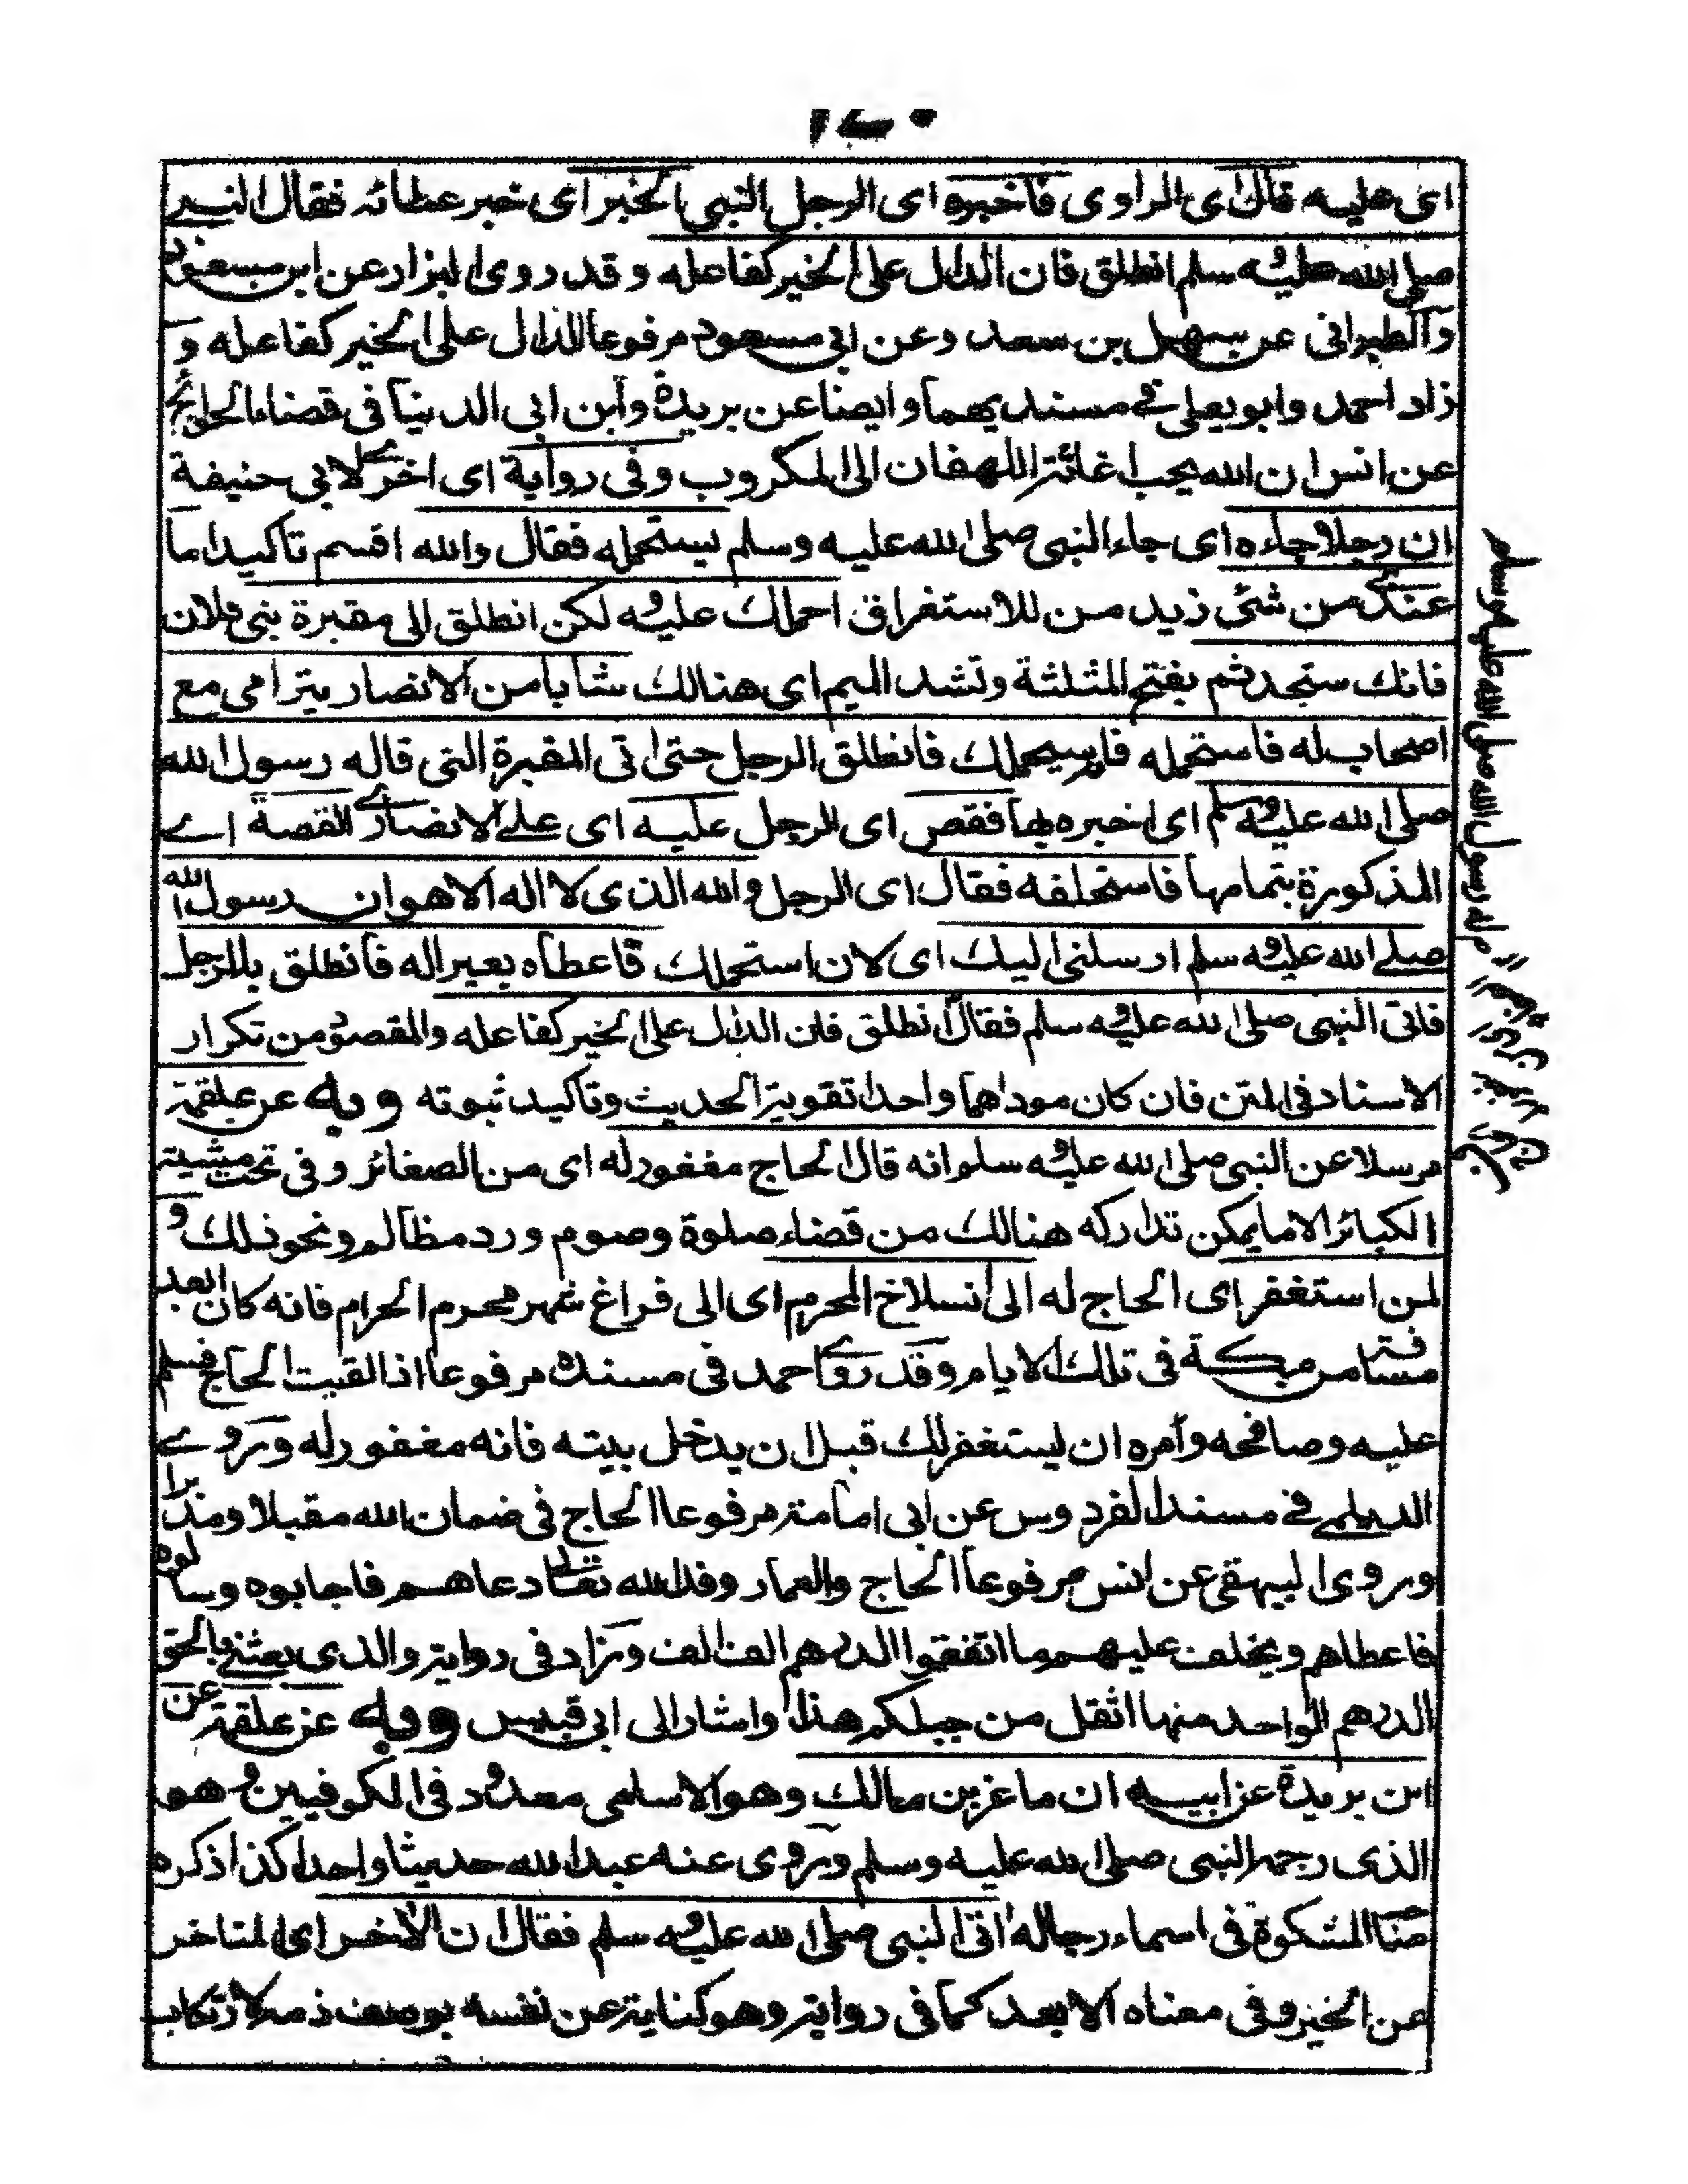 اى عليه قال اى الراوى فاخبره اى الرجل النبي الخبر اى خبر عطائه فقال النبي
صلى الله عليه وسلم انطلق فان الدال على الخير كفاعله وقد روى البزار عن ابن مسعود
والطبرانى عن سهل بن سعد وعن ابى مسعود مرفوعا الدال على الخير كفاعله و
زاد احمد وابو يعلى فى مسنديهما وايضا عن بريدة وابن ابى الدنيا فى قضاء الحوائج
عن انس ان الله يحب اغاثة اللهفان اى المكروب وفى رواية اى اخرى لابى حنيفة
ان رجلا جاءه اى جاء النبى صلى الله عليه وسلم يستحمله فقال والله اقسم تاكيدا ما
عندى من شئ زيد من للاستغراق احملك عليه لكن انطلق الى مقبرة بنى فلان
فانك ستجد ثم بفتح المثلثة وتشد الميم اى هنالك شابا من الانصار يترامى مع
اصحاب له فاستحمله فانه سيحملك فانطلق الرجل حتى اتى المقبرة التى قاله رسول الله
صلى الله عليه وسلم اى اخبره بها فقص اى الرجل عليه اى على الانصارى القصة اے
المذكورة بتمامها فاستحلفه فقال اى الرجل والله الذى لا اله الا هو ان رسول الله
صلى الله عليه وسلم ارسلنى اليك اى لان استحملك فاعطاه بعيرا له فانطلق بالرجل
فاتى النبى صلى الله عليه وسلم فقال انطلق فان الدال على الخير كفاعله والمقصود من تكرار
الاسناد فى المتن فان كان موداهما واحدا تقوية الحديث وتاكيد ثبوته وبه عن علقمة
مرسلا عن النبى صلى الله عليه وسلم انه قال الحاج مغفور له اى من الصغائر وفى تحت مشيته
الكبائر الا ما يمكن تداركه هنالك من قضاء صلوة وصوم ورد مظالم ونحو ذلك و
لمن استغفر اى الحاج له الى انسلاخ المحرم اى الى فراغ شهر محرم الحرام فانه كان ابعد
مسافة من مكة فى تلك الايام وقد روى احمد فى مسنده مرفوعا اذا لقيت الحاج فسلم
عليه وصافحه وامره ان يستغفر لك قبل ان يدخل بيته فانه مغفور له وروے
الديلمى فى مسند الفردوس عن ابى امامة مرفوعا الحاج فى ضمان الله مقبلا ومدبرا
وروى البيهقى عن انس مرفوعا الحاج والعمار وفد الله تعالى دعاهم فاجابوه وسالوه
فاعطاهم ويخلف عليهم ما انفقوا الدرهم الف الف وزاد فى رواية والذى بعثنى بالحق
الدرهم الواحد منها اثقل من جبلكم هذا واشار الى ابى قبيس وبه عن علقمة عن
ابن بريدة عن ابيه ان ماعز بن مالك وهو الاسلمى معدود فى الكوفيين وهو
الذى رجمه النبى صلى الله عليه وسلم وروى عنه عبد الله حديثا واحدا كذا ذكره
صاحب المشكوة فى اسماء رجاله اتى النبى صلى الله عليه وسلم فقال ان الاخر اى المتاخر
عن الخير وفى معناه الابعد كما فى رواية وهو كناية عن نفسه بوصف ذم لارتكاب
له رسول الله صلى الله عليه وسلم